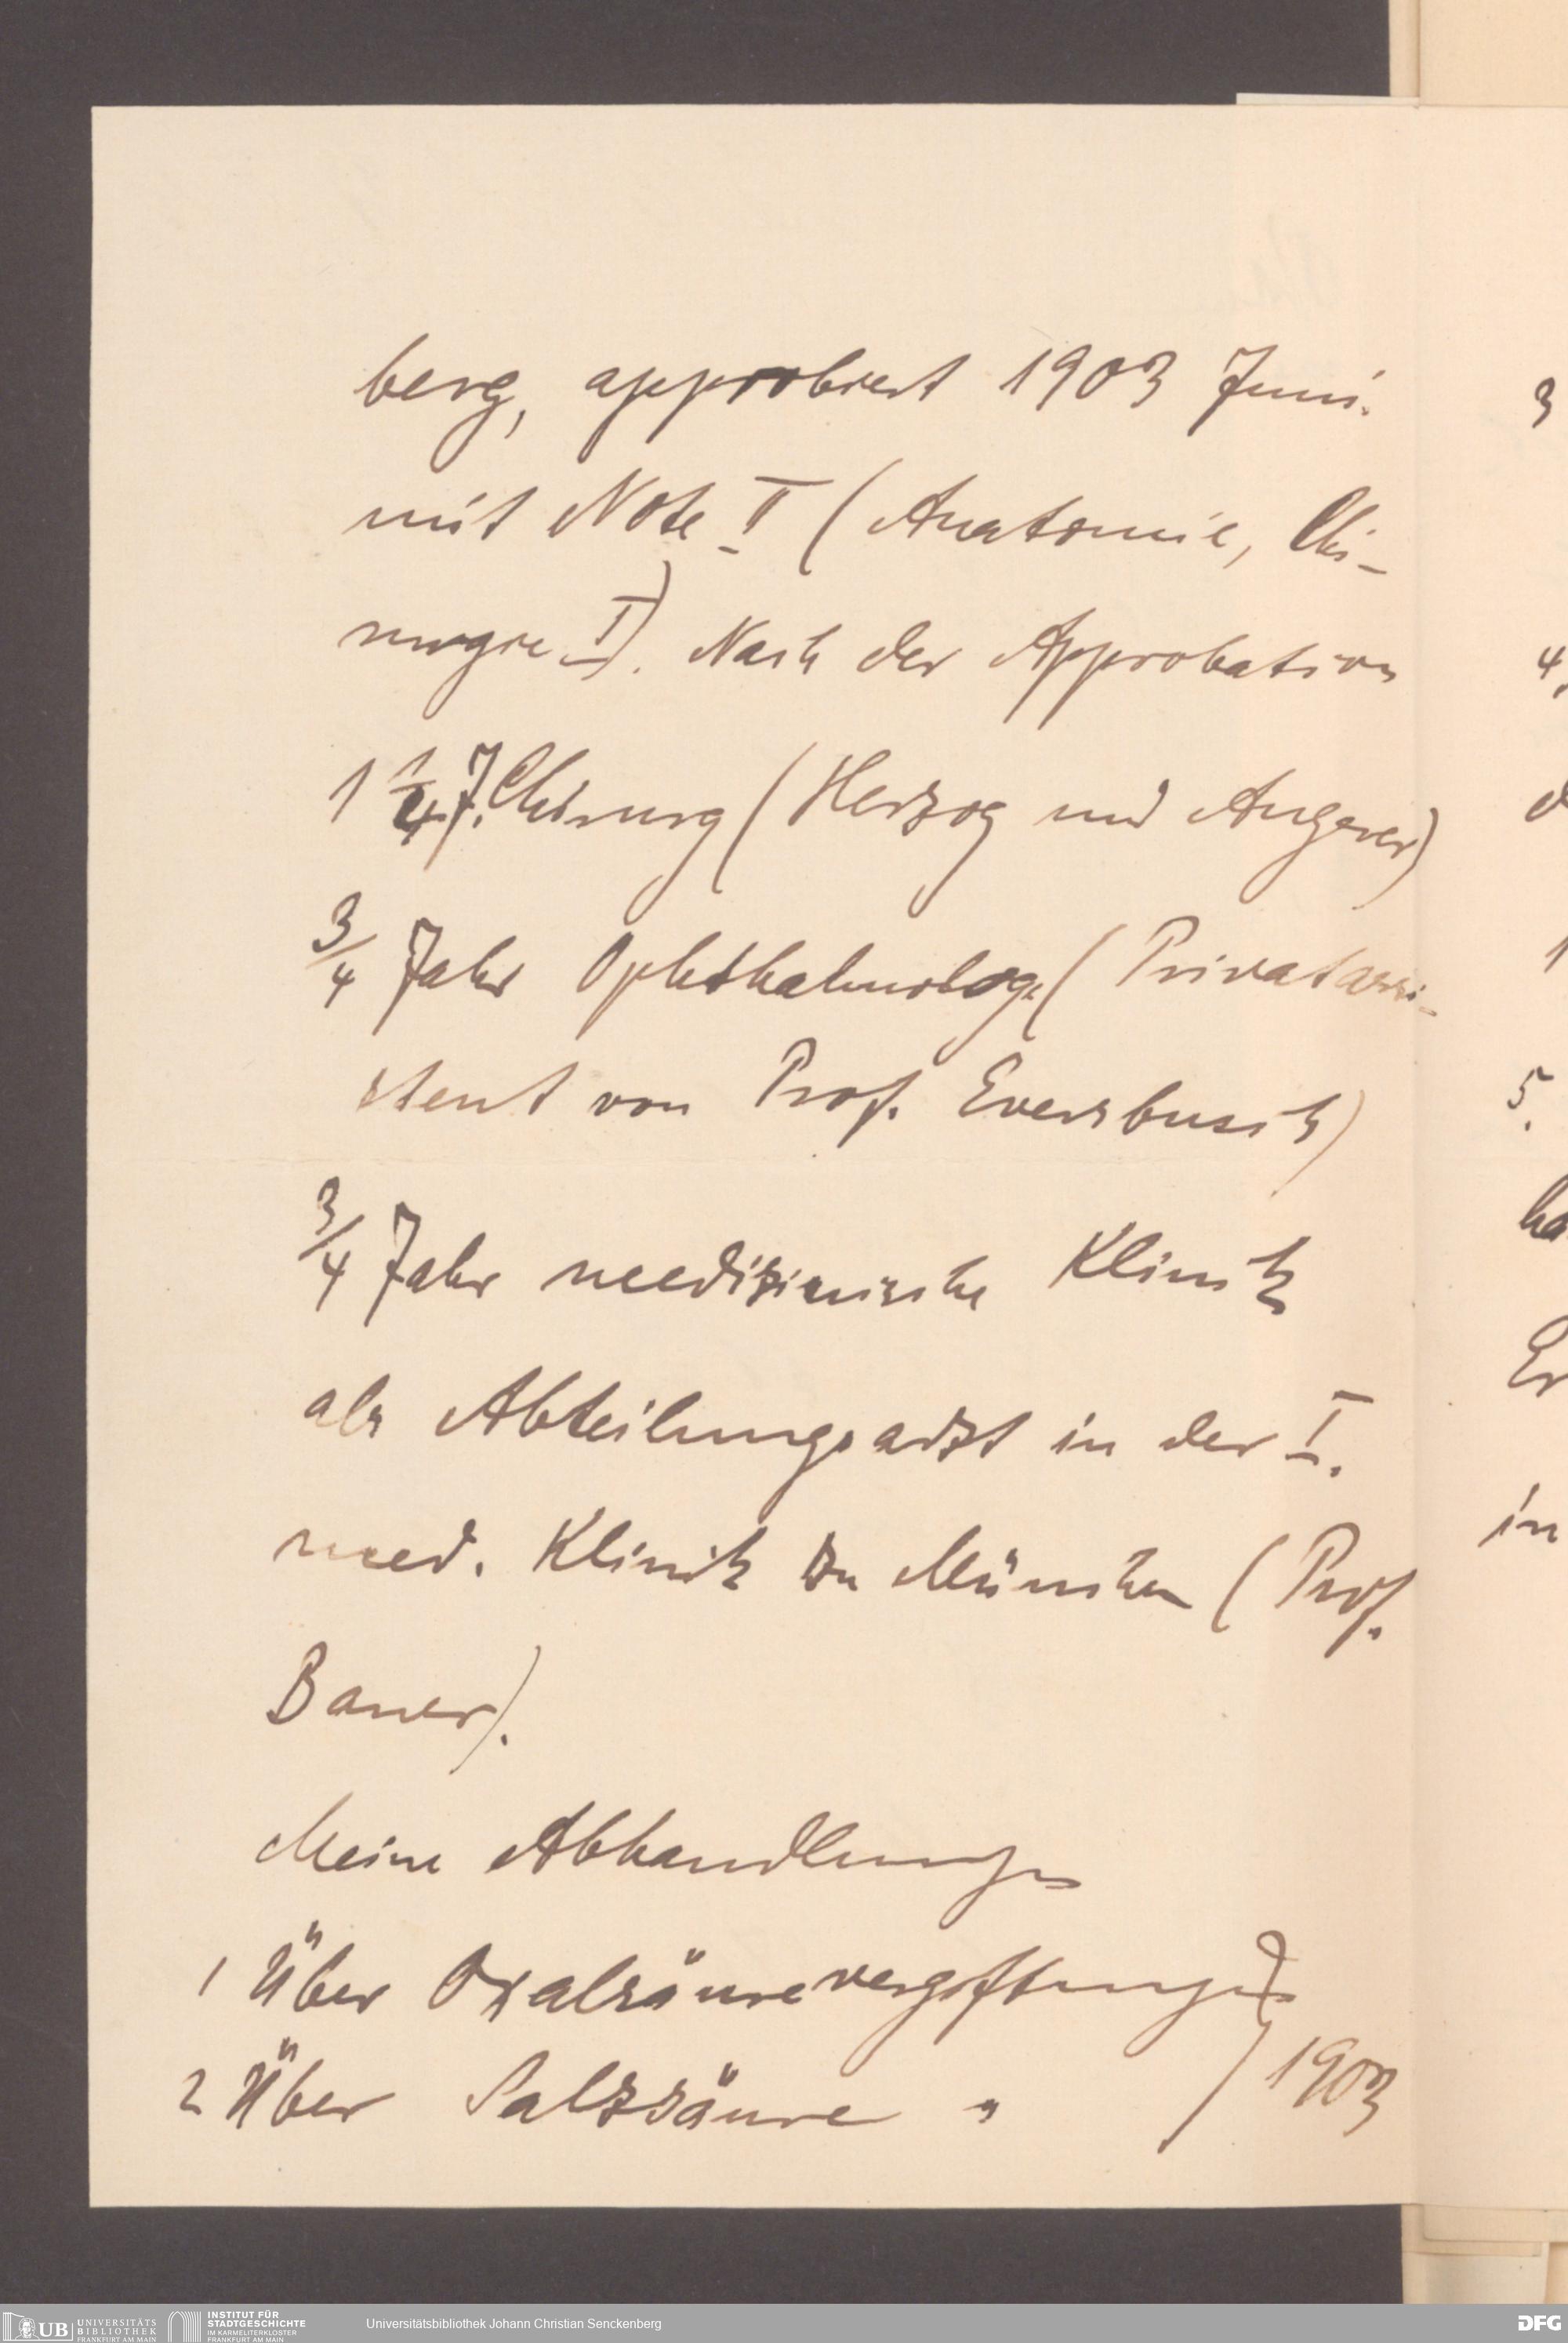 berg, approbiert 1903 Juni.
mit Note II (Anatomie, Chi-
rurgie I). Nach der Approbation
1 1/4 J. Chirurg (Herzog und Angerer)
3/4 Jahr Ophthalmolog. (Privatassi-
stent von Prof. Eversbusch)
3/4 Jahr medizinische Klinik
als Abteilungsarzt in der I.
med. Klinik zu München (Prof.
Bauer).
Meine Abhandlungen
1 Über Oxalsäurevergiftungen
2 Über Salzsäure " } 1903
3
4.
1
5.
ha
Er
in
UB UNIVERSITÄTS BIBLIOTHEK FRANKFURT AM MAIN
INSTITUT FÜR STADTGESCHICHTE IM KARMELITERKLOSTER FRANKFURT AM MAIN
Universitätsbibliothek Johann Christian Senckenberg
DFG